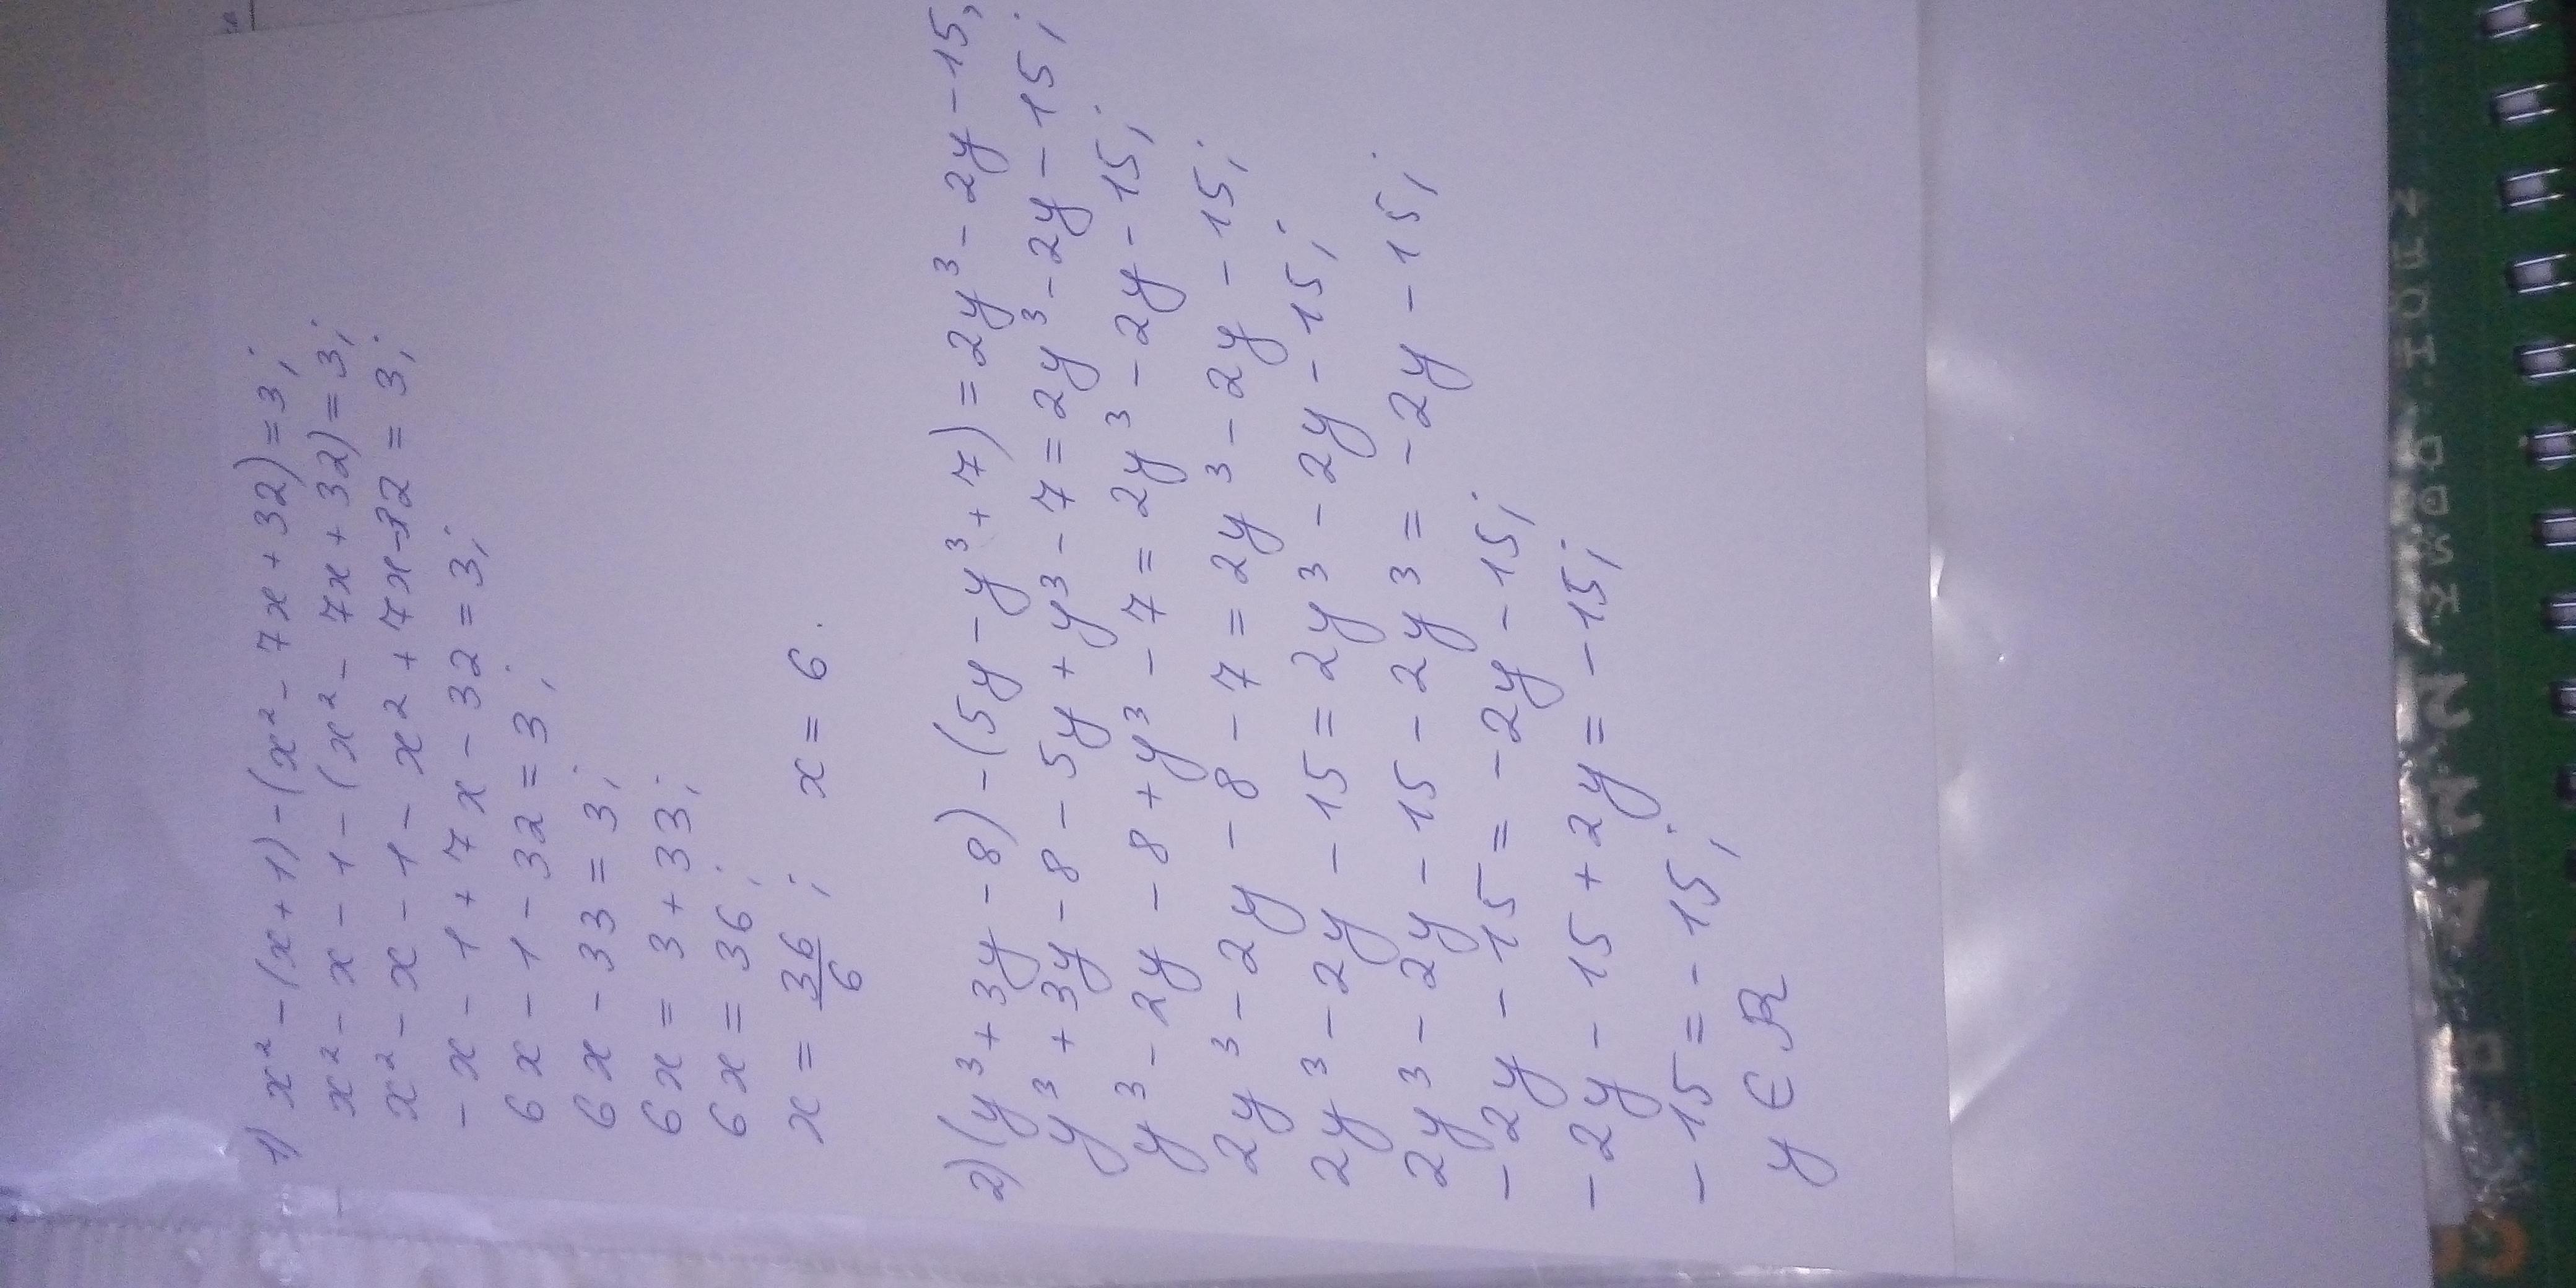 1) x² - (x + 1) - (x² - 7x + 32) = 3;
x² - x - 1 - (x² - 7x + 32) = 3;
x² - x - 1 - x2 + 7x - 32 = 3;
- x - 1 + 7x - 32 = 3;
6x - 1 - 32 = 3;
6x - 33 = 3;
6x = 3 + 33;
6x = 36;
x = 36/6; x = 6.
2) (y³ + 3y - 8) - (5y - y³ + 7) = 2y³ - 2y - 15;
y³ + 3y - 8 - 5y + y³ - 7 = 2y³ - 2y - 15;
y³ - 2y - 8 + y³ - 7 = 2y³ - 2y - 15;
2y³ - 2y - 8 - 7 = 2y³ - 2y - 15;
2y³ - 2y - 15 = 2y³ - 2y - 15;
2y³ - 2y - 15 - 2y³ = - 2y - 15;
- 2y - 15 = - 2y - 15;
- 2y - 15 + 2y = - 15;
- 15 = - 15;
y ∈ R